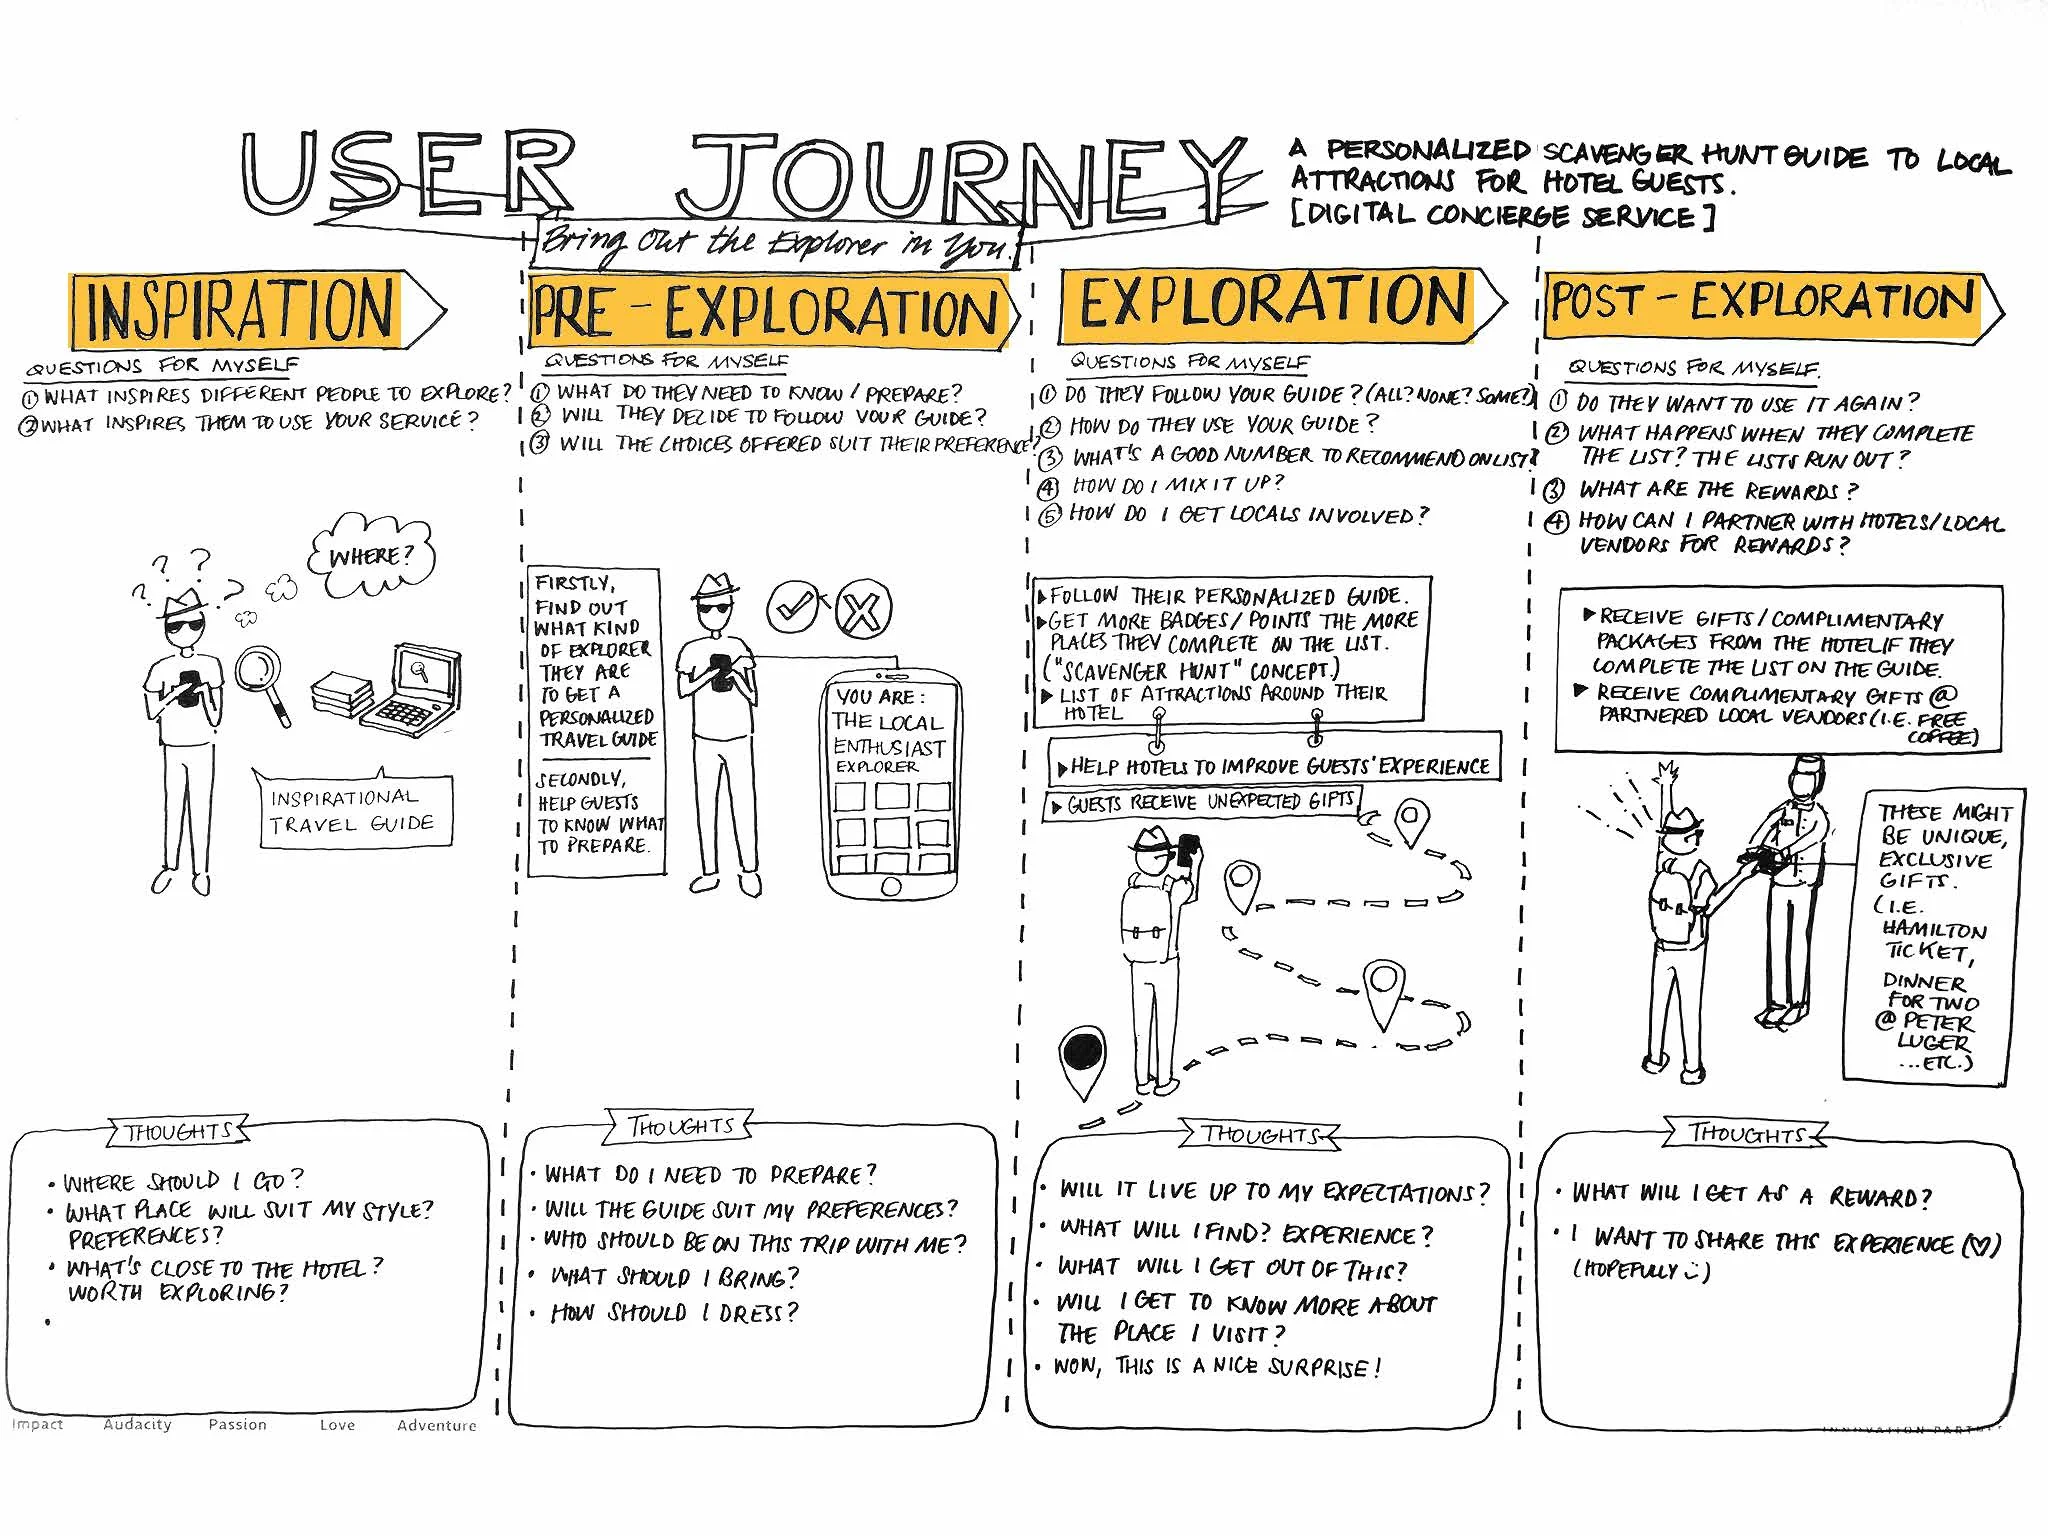 USER JOURNEY
Bring Out the Explorer in You.
A PERSONALIZED SCAVENGER HUNT GUIDE TO LOCAL
ATTRACTIONS FOR HOTEL GUESTS.
[DIGITAL CONCIERGE SERVICE]
INSPIRATION
QUESTIONS FOR MYSELF
① WHAT INSPIRES DIFFERENT PEOPLE TO EXPLORE?
② WHAT INSPIRES THEM TO USE YOUR SERVICE?
? ? ? ?
WHERE?
INSPIRATIONAL
TRAVEL GUIDE
THOUGHTS
• WHERE SHOULD I GO?
• WHAT PLACE WILL SUIT MY STYLE?
PREFERENCES?
• WHAT'S CLOSE TO THE HOTEL?
WORTH EXPLORING?
•
Impact Audacity Passion Love Adventure
PRE-EXPLORATION
QUESTIONS FOR MYSELF
① WHAT DO THEY NEED TO KNOW / PREPARE?
② WILL THEY DECIDE TO FOLLOW YOUR GUIDE?
③ WILL THE CHOICES OFFERED SUIT THEIR PREFERENCE?
FIRSTLY,
FIND OUT
WHAT KIND
OF EXPLORER
THEY ARE
TO GET A
PERSONALIZED
TRAVEL GUIDE
SECONDLY,
HELP GUESTS
TO KNOW WHAT
TO PREPARE.
YOU ARE:
THE LOCAL
ENTHUSIAST
EXPLORER
THOUGHTS
• WHAT DO I NEED TO PREPARE?
• WILL THE GUIDE SUIT MY PREFERENCES?
• WHO SHOULD BE ON THIS TRIP WITH ME?
• WHAT SHOULD I BRING?
• HOW SHOULD I DRESS?
EXPLORATION
QUESTIONS FOR MYSELF
① DO THEY FOLLOW YOUR GUIDE? (ALL? NONE? SOME?)
② HOW DO THEY USE YOUR GUIDE?
③ WHAT'S A GOOD NUMBER TO RECOMMEND ON LIST?
④ HOW DO I MIX IT UP?
⑤ HOW DO I GET LOCALS INVOLVED?
▶ FOLLOW THEIR PERSONALIZED GUIDE.
▶ GET MORE BADGES/ POINTS THE MORE
PLACES THEY COMPLETE ON THE LIST.
("SCAVENGER HUNT" CONCEPT.)
▶ LIST OF ATTRACTIONS AROUND THEIR
HOTEL
▶ HELP HOTELS TO IMPROVE GUESTS' EXPERIENCE
▶ GUESTS RECEIVE UNEXPECTED GIFTS
THOUGHTS
• WILL IT LIVE UP TO MY EXPECTATIONS?
• WHAT WILL I FIND? EXPERIENCE?
• WHAT WILL I GET OUT OF THIS?
• WILL I GET TO KNOW MORE ABOUT
THE PLACE I VISIT?
• WOW, THIS IS A NICE SURPRISE!
POST-EXPLORATION
QUESTIONS FOR MYSELF.
① DO THEY WANT TO USE IT AGAIN?
② WHAT HAPPENS WHEN THEY COMPLETE
THE LIST? THE LISTS RUN OUT?
③ WHAT ARE THE REWARDS?
④ HOW CAN I PARTNER WITH HOTELS/LOCAL
VENDORS FOR REWARDS?
▶ RECEIVE GIFTS/COMPLIMENTARY
PACKAGES FROM THE HOTEL IF THEY
COMPLETE THE LIST ON THE GUIDE.
▶ RECEIVE COMPLIMENTARY GIFTS @
PARTNERED LOCAL VENDORS (I.E. FREE
COFFEE)
THESE MIGHT
BE UNIQUE,
EXCLUSIVE
GIFTS.
(I.E.
HAMILTON
TICKET,
DINNER
FOR TWO
@ PETER
LUGER
...ETC.)
THOUGHTS
• WHAT WILL I GET AS A REWARD?
• I WANT TO SHARE THIS EXPERIENCE (♡)
(HOPEFULLY :))